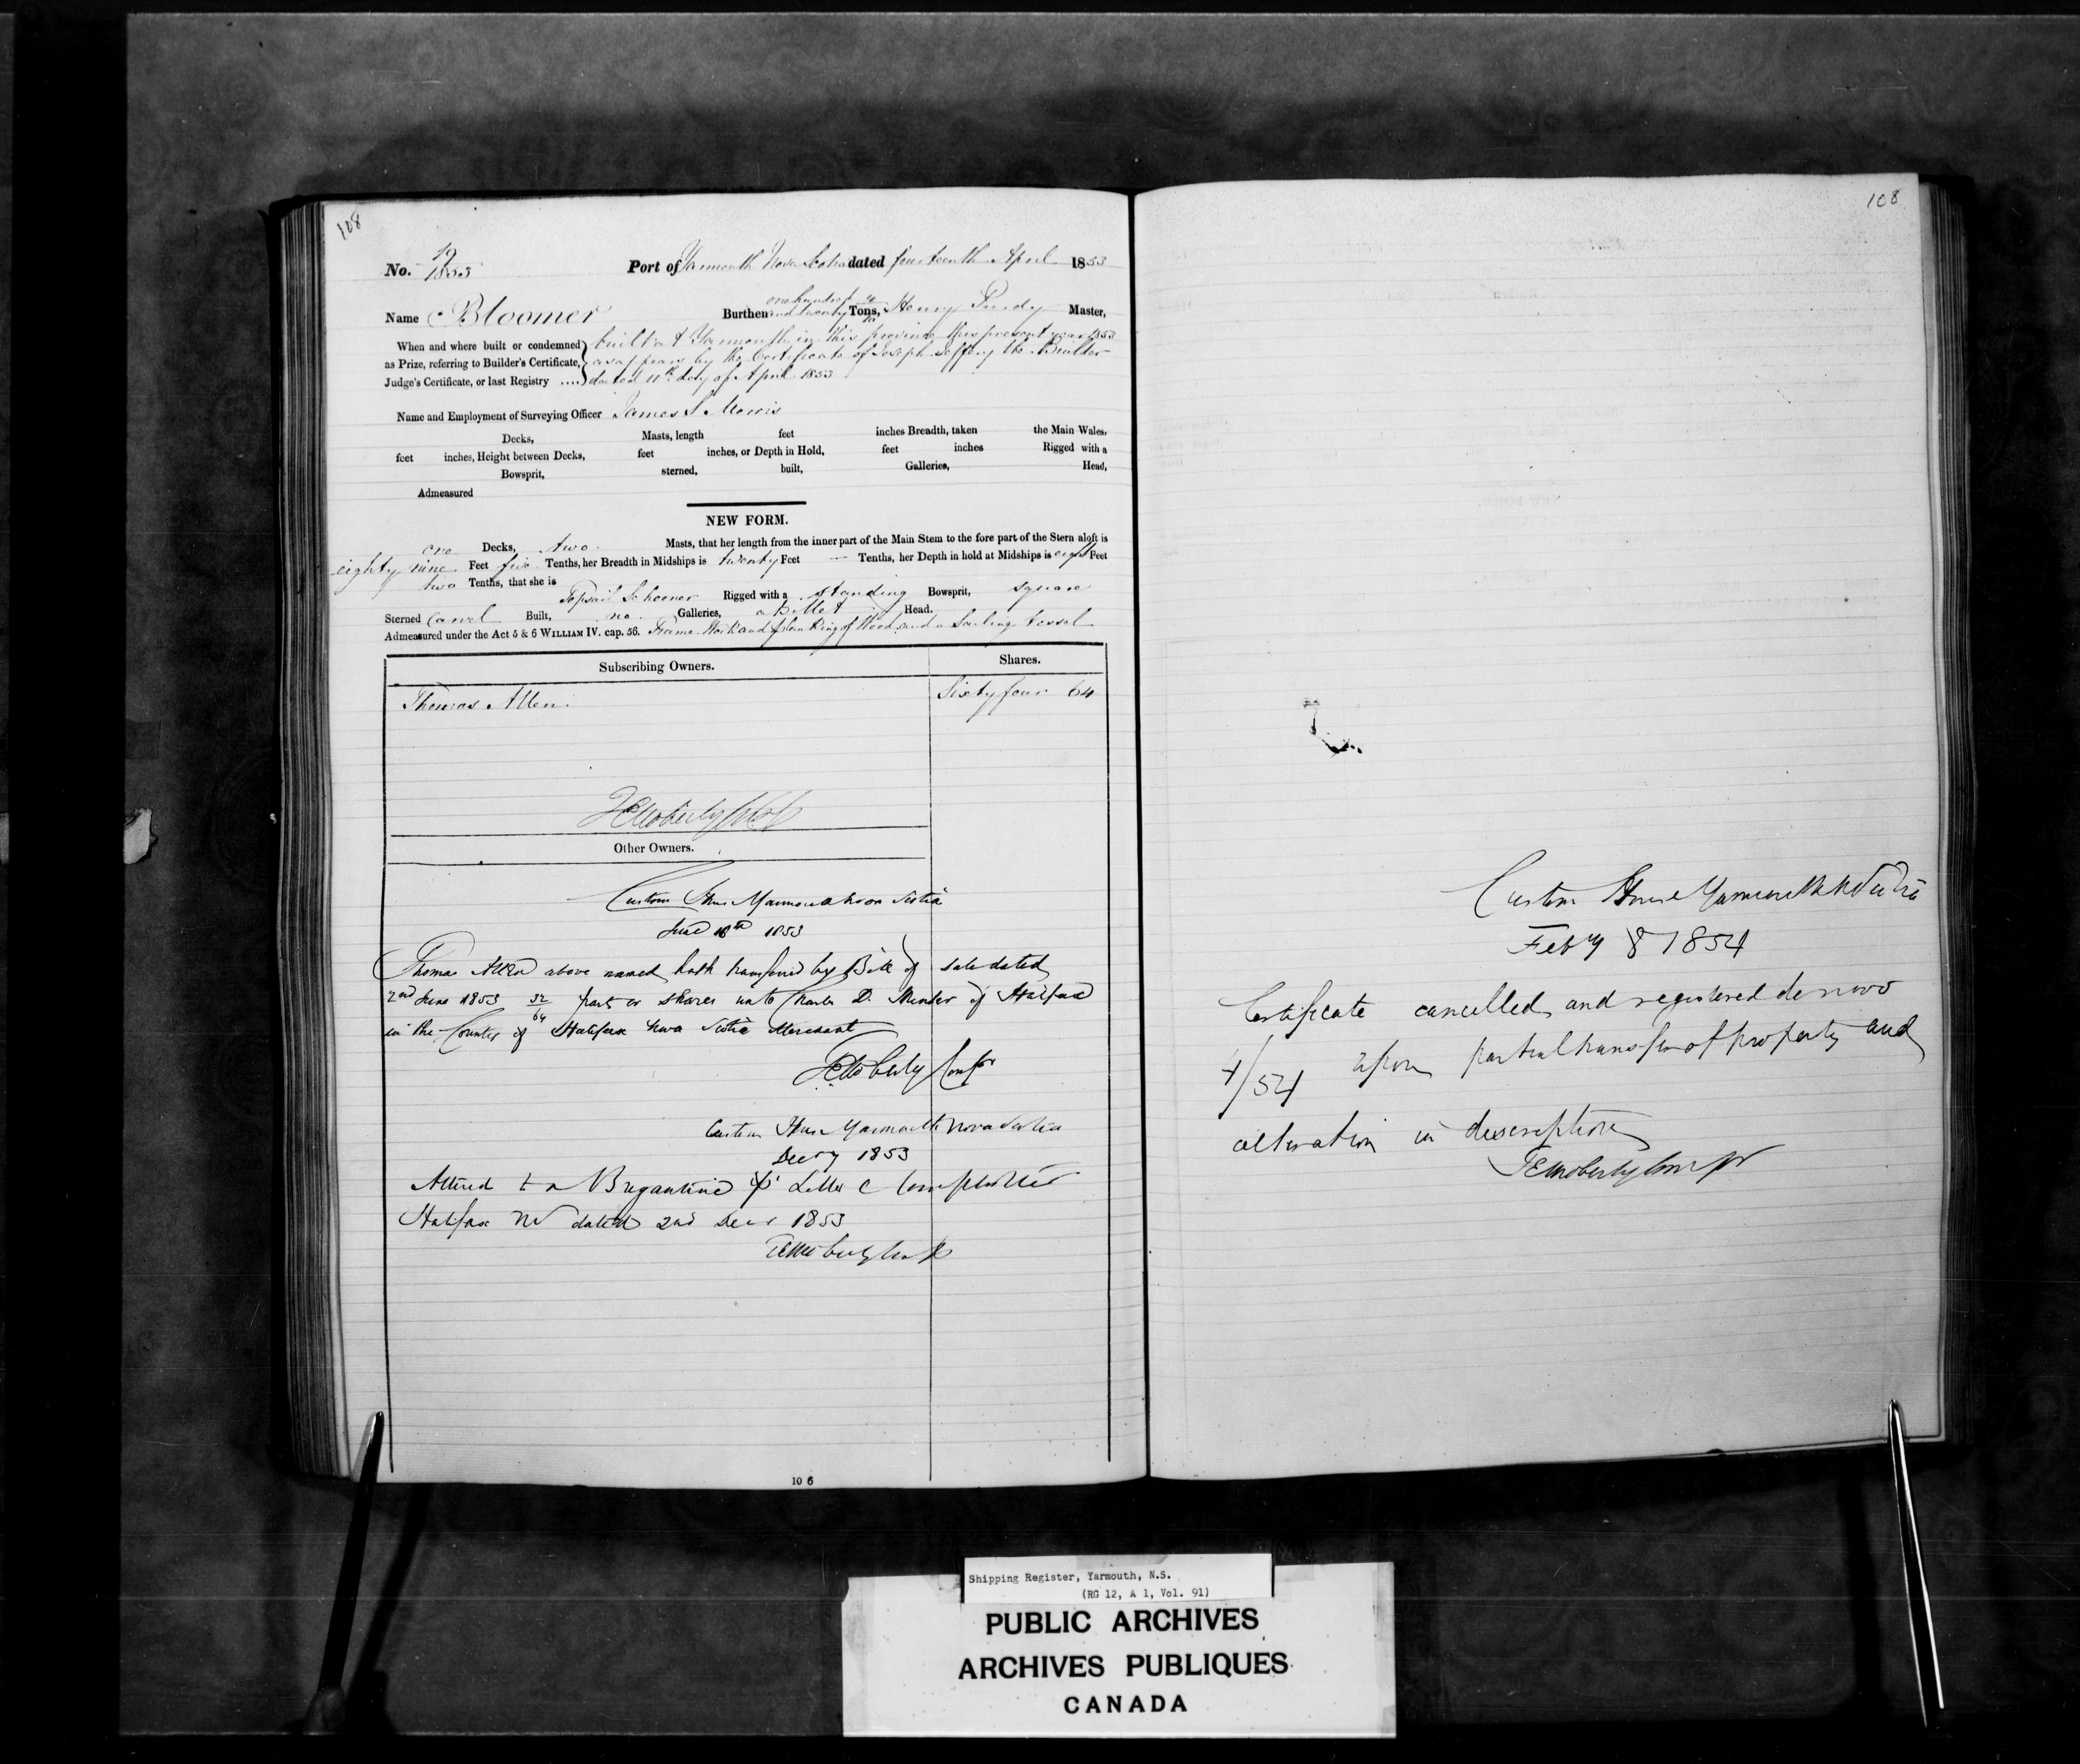 108
No. 19/1853 Port of Yarmouth Nova Scotia dated fourteenth April 1853
Name Bloomer Burthen one hundred and twenty Tons, Henry Purdy Master,
When and where built or condemned as Prize, referring to Builder's Certificate, Judge's Certificate, or last Registry ....
built at Yarmouth in this province this present year 1853
as appears by the Certificate of Joseph Jeffery the Builder
dated 11th day of April 1853
Name and Employment of Surveying Officer James S Morris
Decks, Masts, length feet inches Breadth, taken the Main Wales,
feet inches, Height between Decks, feet inches, or Depth in Hold, feet inches Rigged with a
Bowsprit, sterned, built, Galleries, Head,
Admeasured
NEW FORM.
one Decks, two Masts, that her length from the inner part of the Main Stem to the fore part of the Stern aloft is
eighty nine Feet five Tenths, her Breadth in Midships is twenty Feet — Tenths, her Depth in hold at Midships is eight Feet
two Tenths, that she is Topsail Schooner Rigged with a standing Bowsprit, square
Sterned Carvel Built, no Galleries, a Billet Head.
Admeasured under the Act 5 & 6 WILLIAM IV. cap. 56. Frame Work and planking of Wood and a Sailing Vessel
Subscribing Owners. Shares.
Thomas Allen Sixty four 64
Other Owners.
Custom House Yarmouth Nova Scotia
June 10th 1853
Thomas Allen above named hath transferred by Bill of sale dated
2nd June 1853 32/64 part or shares unto Charles D. Hunter of Halifax
in the County of Halifax Nova Scotia Merchant
TE Moberly Compr
Custom House Yarmouth Nova Scotia
1853
Altered to a Brigantine pr Letter C Comptroller
Halifax NS dated 2nd Decr 1853
TE Moberly
10 6
108
Custom House Yarmouth N Scotia
Feby 8 1854
Certificate cancelled and registered de novo
4/54 upon partial transfer of property and
alteration in description
TE Moberly Compr
Shipping Register, Yarmouth, N.S.
(RG 12, A 1, Vol. 91)
PUBLIC ARCHIVES
ARCHIVES PUBLIQUES
CANADA